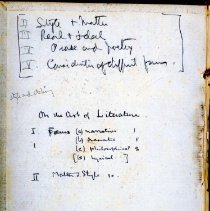 II Style & Matter
III Real & Ideal
IV Prose and Poetry
V Consideration of different forms.
On the Art of Literature.
I Forms (a) narrative 1
(b) Dramatic
(c) philosophical 3
[(d) Lyrical]
II Matter & Style